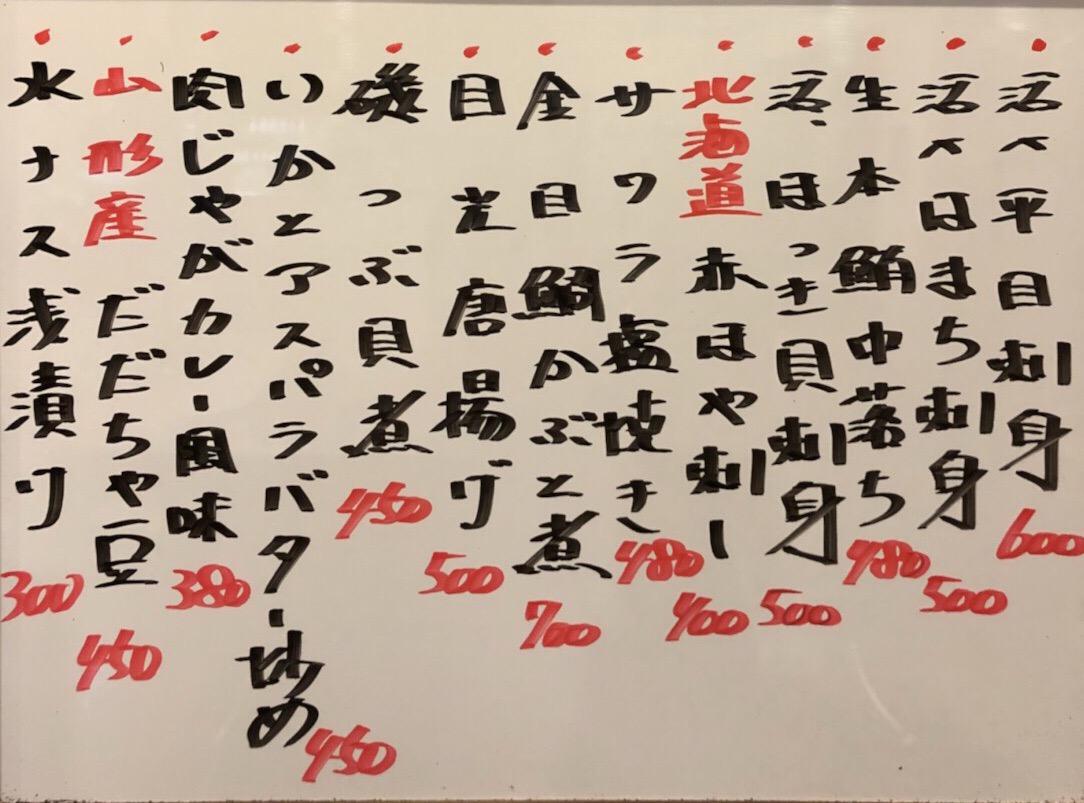 活〆平目刺身 600
活〆はまち刺身 500
生本鮪中落ち 480
活ほっき貝刺身 500
北海道赤ほや刺し 400
サワラ塩焼き 480
金目鯛かぶと煮 700
目光唐揚げ 500
磯つぶ貝煮 450
いかとアスパラバター炒め 450
肉じゃがカレー風味 380
山形産だだちゃ豆 450
水ナス浅漬け 300